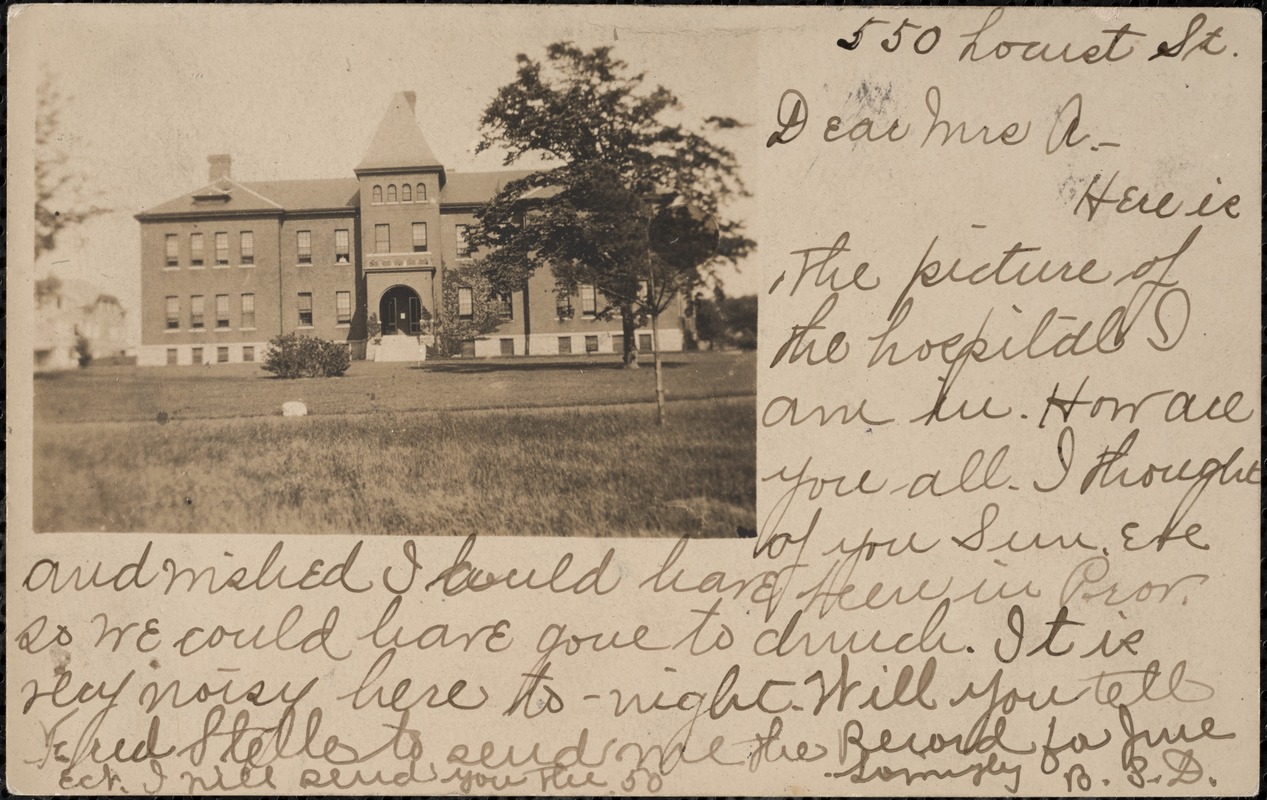 550 Locust St.
Dear Mrs A.-
Here is
the picture of
the hospital I
am in. How are
you all. I thought
of you Sun. Eve
and wished I could have been in Prov.
so we could have gone to church. It is
very noisy here to-night. Will you tell
Fred Stelle to send me the Record for June
I will send you the 50
Lovingly B. S. D.